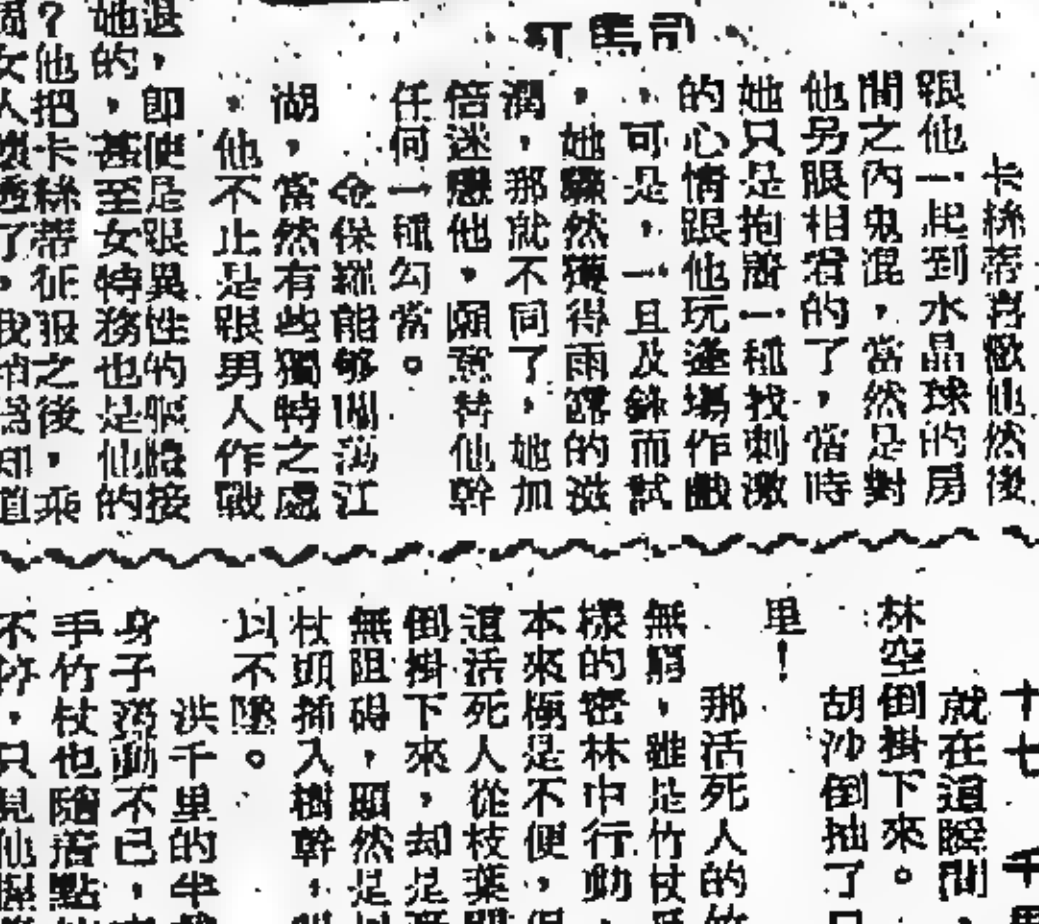 司馬
卡絲蒂喜歡他然後
跟他一起到水晶球的房
間之內鬼混，當然是對
他另眼相看的了，當時
她只是抱着一種找刺激
的心情跟他玩逢場作戲
，可是，一旦及鋒而試
，她驟然獲得雨露的滋
潤，那就不同了，她加
倍迷戀他，願意替他幹
任何一種勾當。
金保羅能够闖蕩江
湖，當然有些獨特之處
，他不止是跟男人作戰
，即使是跟異性的接
退
她的，甚至女特務也是他的
？他把卡絲蒂征服之後，乘
女人壞透了，我
知道
十七 千里
就在這瞬間，
林空倒掛下來。
胡沙倒抽了口
里！
那活死人的竹
無窮，雖是竹杖
樣的密林中行動，
本來極是不便，但
這活死人從枝葉間
倒掛下來，却是
無阻碍，顯然是以
杖頭插入樹幹，
以不墜。
洪千里的半截
身子盪動不已，
手竹杖也隨着點
不，只見他